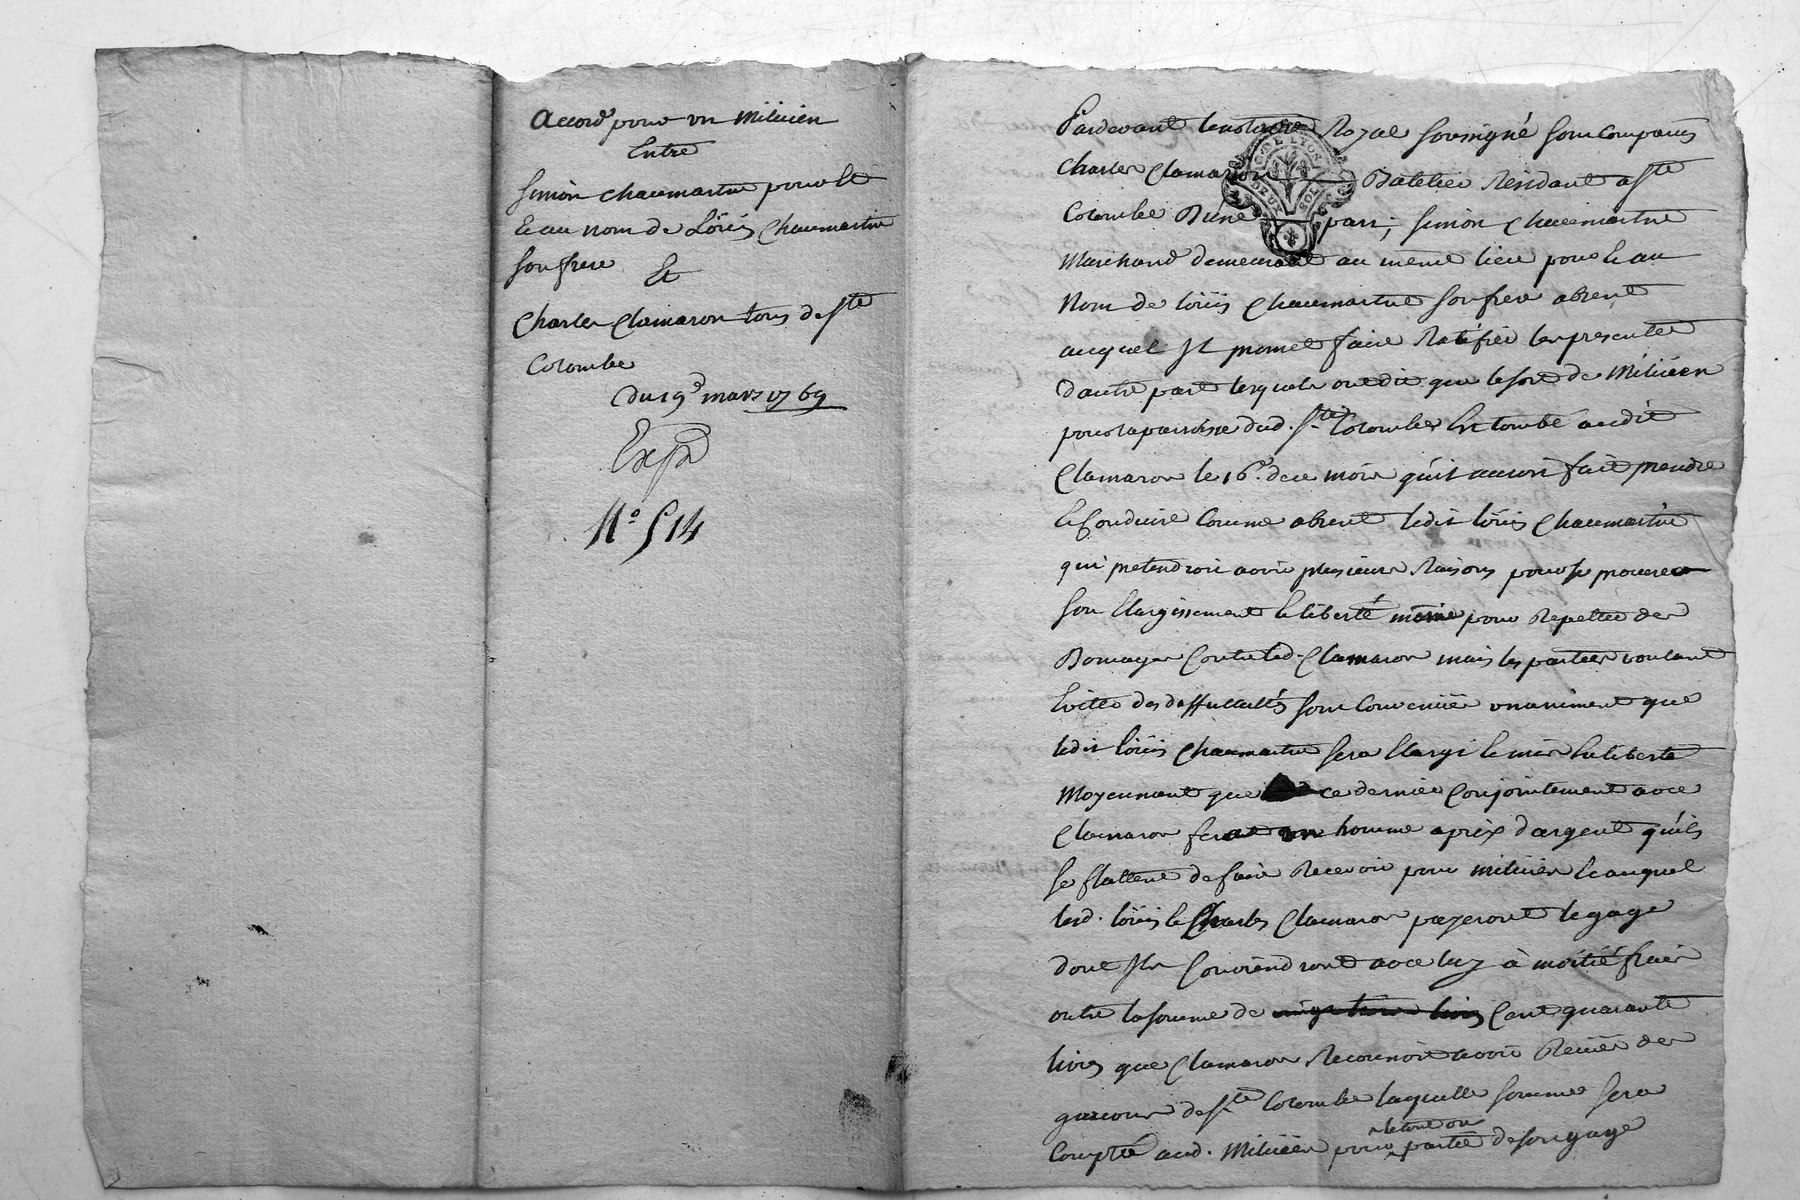 Accord pour un Milicien
Entre
Simon Chaumartin pour et
et au nom de Loüis Chaumartin
son frere
Et
Charles Clamaron tous de Ste
Colombe
du 19e mars 1769
Expé
N.o 514
Pardevant le notaire Royal soussigné sont comparus
Charles Clamaron Batelier Résidant a Ste
Colombe D'une part, Simon Chaumartin
Marchand demeurant au même lieu pour et au
Nom de Loüis Chaumartin son frere absent
auquel Il promet faire Ratifier les presentes
d'autre part lesquels ont dit que le sort de Miliciën
pour la paroisse dud. Ste Colombe Est tombé audit
Clamaron le 16e. de ce mois qu'il auroit fait prendre
et Conduire Comme absent ledit Loüis Chaumartin
qui pretendroit avoir plusieurs Raisons pour se procurer
son Elargissement et liberté même pour Repetter des
Domages Contre led. Clamaron mais les parties voulant
Eviter des difficultés sont Convenües unaniment que
ledit Loüis Chaumartin sera Elargi et mis En liberté
Moyennant que ce dernier Conjointement avec
Clamaron feront un homme a prix d'argent qu'ils
se flattent de faire Recevoir pour milicien et auquel
lesd. Loüis et Charles Clamaron payeront le gage
dont Ils Conviendront avec luy à moitié frais
outre la somme de Cent quarante
livres que Clamaron Reconnoit avoir Reçües des
garçons de Ste Colombe laquelle somme sera
Comptée aud. Miliciën pour le tout ou partie de son gage